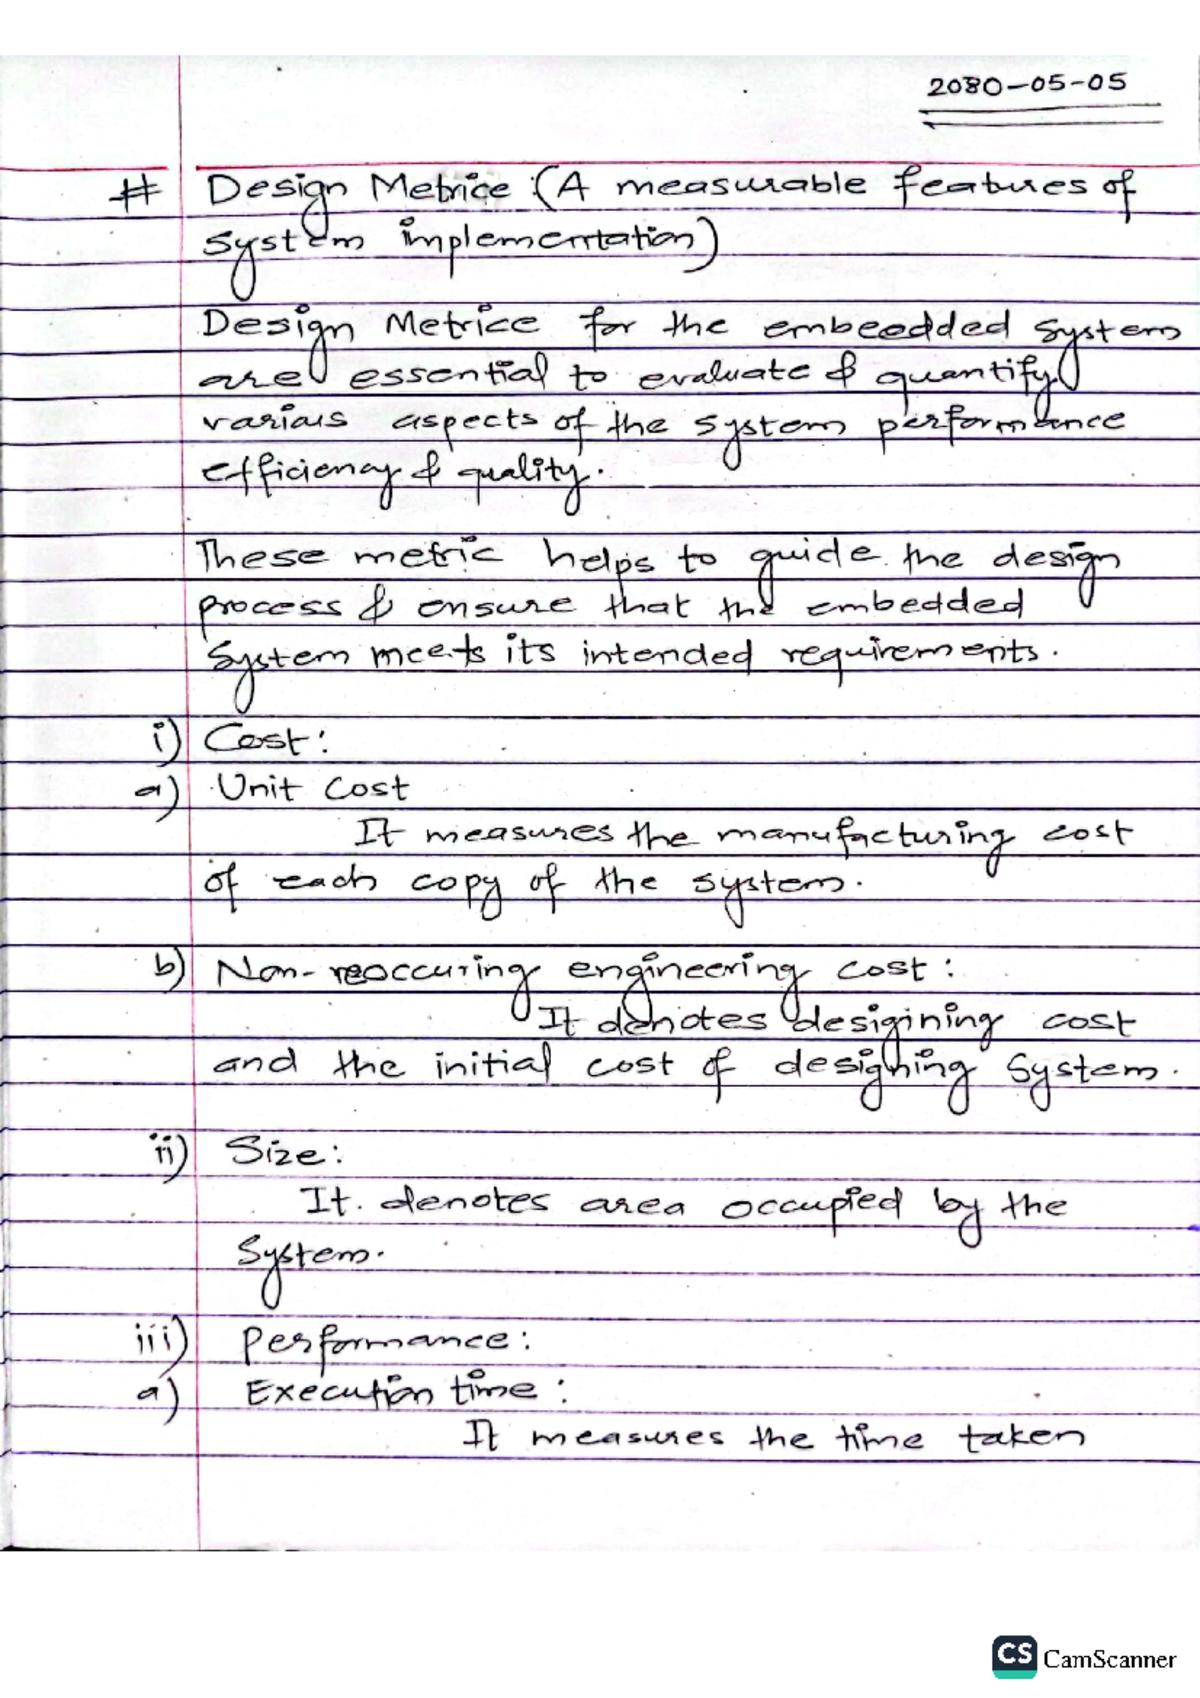 2080-05-05
# Design Metrice (A measurable features of
system implementation)
Design Metrice for the embeedded system
are essential to evaluate & quantify
variais aspects of the system performance
efficiency & quality.
These metric helps to guide the design
process & ensure that the embedded
system meets its intended requirements.
i) Cost:
a) Unit cost
It measures the manufacturing cost
of each copy of the system.
b) Non-reoccuring engineering cost:
It denotes desigining cost
and the initial cost of designing system.
ii) Size:
It denotes area occupied by the
system.
iii) Performance:
a) Execution time:
It measures the time taken
CS CamScanner